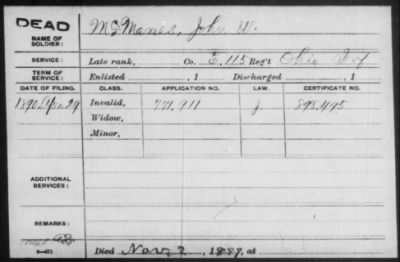 DEAD
NAME OF SOLDIER:
McManes, John W.
SERVICE:
Late rank, Co. E, 115 Reg't Ohio Inf
TERM OF SERVICE:
Enlisted , 1 Discharged , 1
DATE OF FILING. CLASS. APPLICATION NO. LAW. CERTIFICATE NO.
1890 29 Invalid, 771,911 898,495
Widow,
Minor,
ADDITIONAL SERVICES:
REMARKS:
Died Nov 2, 188 , at